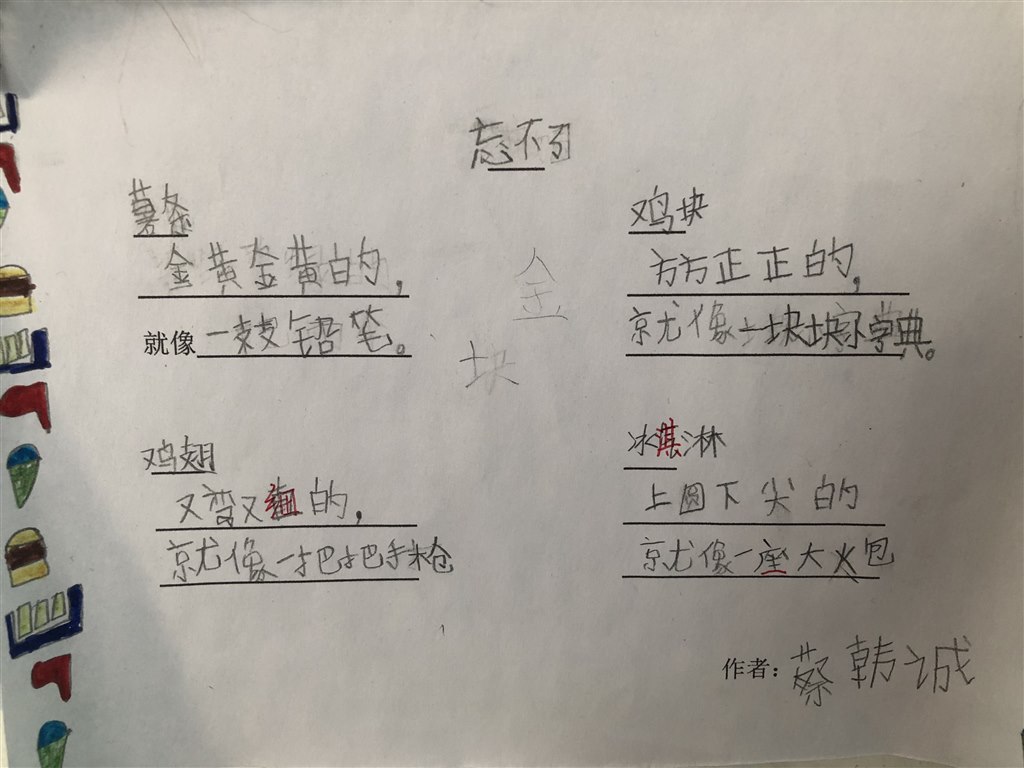 忘不了
薯条
金黄金黄的，
就像一支支铅笔。
鸡块
方方正正的，
就像一块块小字典。
金
块
鸡翅
又弯又细的，
就像一把把手枪
冰淇淋
上圆下尖的
就像一座大火包
作者：蔡韩诚